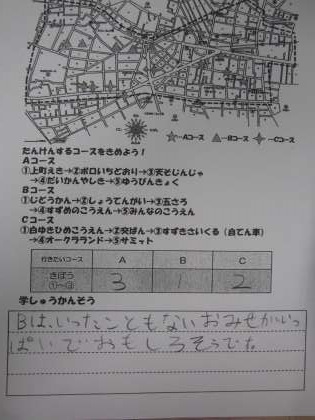 ☆→Aコース
→Bコース
→Cコース
たんけんするコースをきめよう！
Aコース
①上町えき→②ボロいちどおり→③天そじんじゃ
→④だいかんやしき→⑤ゆうびんきょく
Bコース
①じどうかん→②しょうてんがい→③五さろ
→④すずめのこうえん→⑤みんなのこうえん
Cコース
①白ゆきひめこうえん→②交ばん→③すずきさいくる（自てん車）
→④オークラランド→⑤サミット
行きたいコース A B C
きぼう ①～③ 3 1 2
学しゅうかんそう
Bは、いったこともないおみせがいっ
ぱいでおもしろそうでた